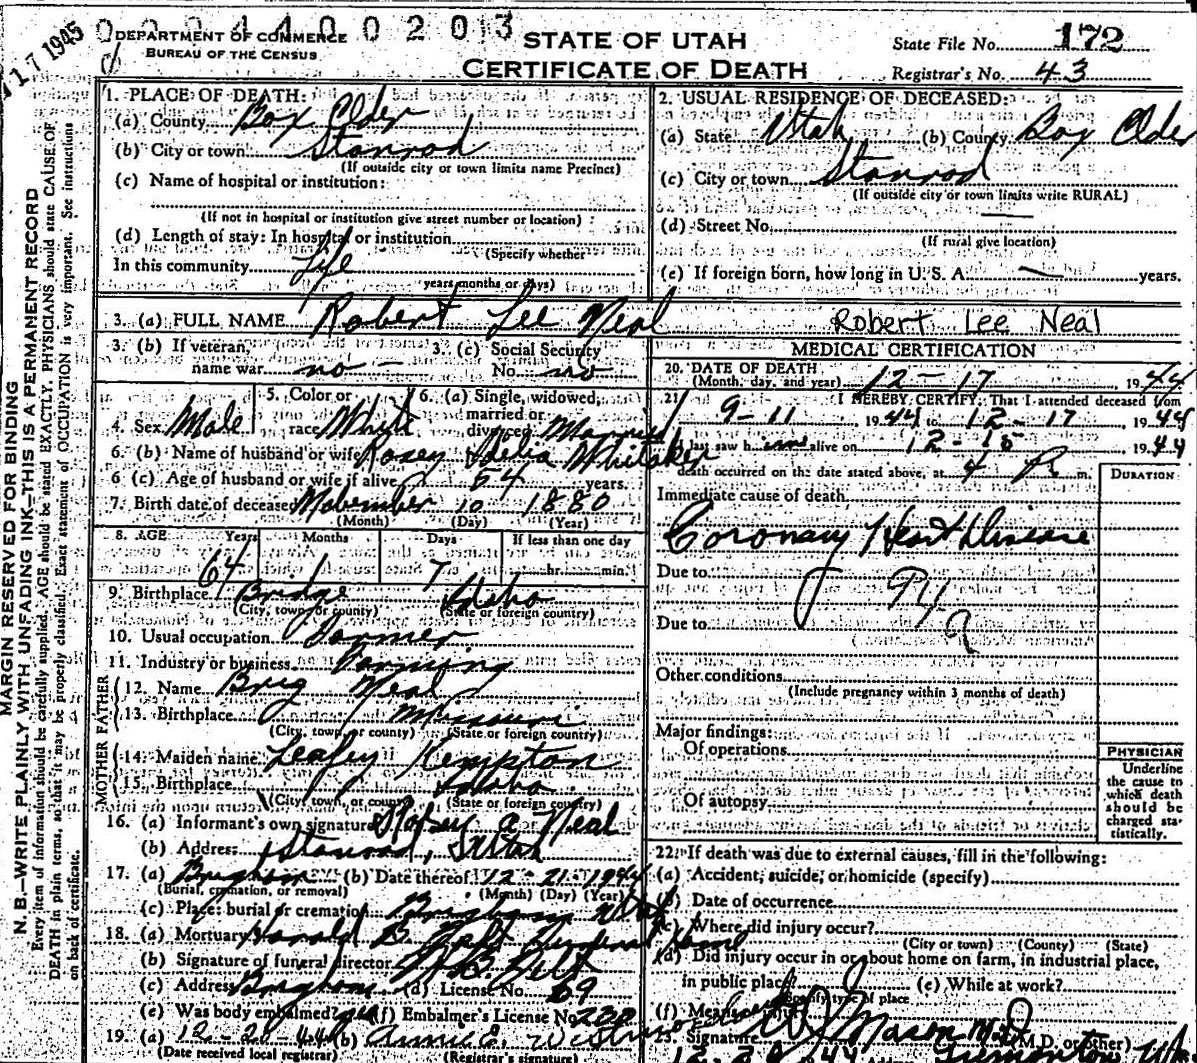 17 1945
00044002013
DEPARTMENT OF COMMERCE
BUREAU OF THE CENSUS
STATE OF UTAH
CERTIFICATE OF DEATH
State File No. 172
Registrar's No. 43
MARGIN RESERVED FOR BINDING
N. B.—WRITE PLAINLY WITH UNFADING INK—THIS IS A PERMANENT RECORD
Every item of information should be carefully supplied. AGE should be stated EXACTLY. PHYSICIANS should state CAUSE OF
DEATH in plain terms, so that it may be properly classified. Exact statement of OCCUPATION is very important. See instructions
on back of certificate.
1. PLACE OF DEATH:
(a) County Box Elder
(b) City or town Stanrod
(If outside city or town limits name Precinct)
(c) Name of hospital or institution:
(If not in hospital or institution give street number or location)
(d) Length of stay: In hospital or institution
(Specify whether
In this community Life
years months or days)
2. USUAL RESIDENCE OF DECEASED:
(a) State Utah (b) County Box Elder
(c) City or town Stanrod
(If outside city or town limits write RURAL)
(d) Street No. —
(If rural give location)
(e) If foreign born, how long in U. S. A. — years.
3. (a) FULL NAME Robert Lee Neal
Robert Lee Neal
3. (b) If veteran, name war no –
3. (c) Social Security No. no
4. Sex Male
5. Color or race White
6. (a) Single, widowed, married or divorced Married
6. (b) Name of husband or wife Rosey Adelia Whitaker
6 (c) Age of husband or wife if alive 54 years.
7. Birth date of deceased November 10 1880
(Month) (Day) (Year)
8. AGE Years Months Days If less than one day
64 7 hr. min.
9. Birthplace Bridge Idaho
(City, town, or county) (State or foreign country)
10. Usual occupation Farmer
11. Industry or business Farming
FATHER
12. Name Brig Neal
13. Birthplace Missouri
(City, town, or county) (State or foreign country)
MOTHER
14. Maiden name Leafey Kempton
15. Birthplace Idaho
(City, town, or county) (State or foreign country)
16. (a) Informant's own signature Rosey a Neal
(b) Address Stanrod, Utah
17. (a) Brigham (b) Date thereof 12-21-1944
(Burial, cremation, or removal) (Month) (Day) (Year)
(c) Place: burial or cremation Brigham Utah
18. (a) Mortuary Harold B. Felt Funeral Home
(b) Signature of funeral director H B. Felt
(c) Address Brigham (d) License No. 69
(e) Was body embalmed? yes (f) Embalmer's License No. 200
19. (a) 12-20-44 (b) Annie E.
(Date received local registrar) (Registrar's signature)
MEDICAL CERTIFICATION
20. DATE OF DEATH
(Month, day, and year) 12-17, 1944
21. I HEREBY CERTIFY, That I attended deceased from
9-11 1944 to 12-17, 1944
I last saw him alive on 12-15, 1944
death occurred on the date stated above, at 4 P. m.
DURATION
Immediate cause of death
Coronary Heart Disease
Due to 94
Due to a
Other conditions
(Include pregnancy within 3 months of death)
Major findings:
Of operations
Of autopsy
PHYSICIAN
Underline
the cause to
which death
should be
charged sta-
tistically.
22. If death was due to external causes, fill in the following:
(a) Accident, suicide, or homicide (specify)
(b) Date of occurrence
(c) Where did injury occur?
(City or town) (County) (State)
(d) Did injury occur in or about home on farm, in industrial place,
in public place?
(Specify type of place
(e) While at work?
(f) Means of injury
23. Signature Mason M.D.
(M.D. or other)
12-20 44